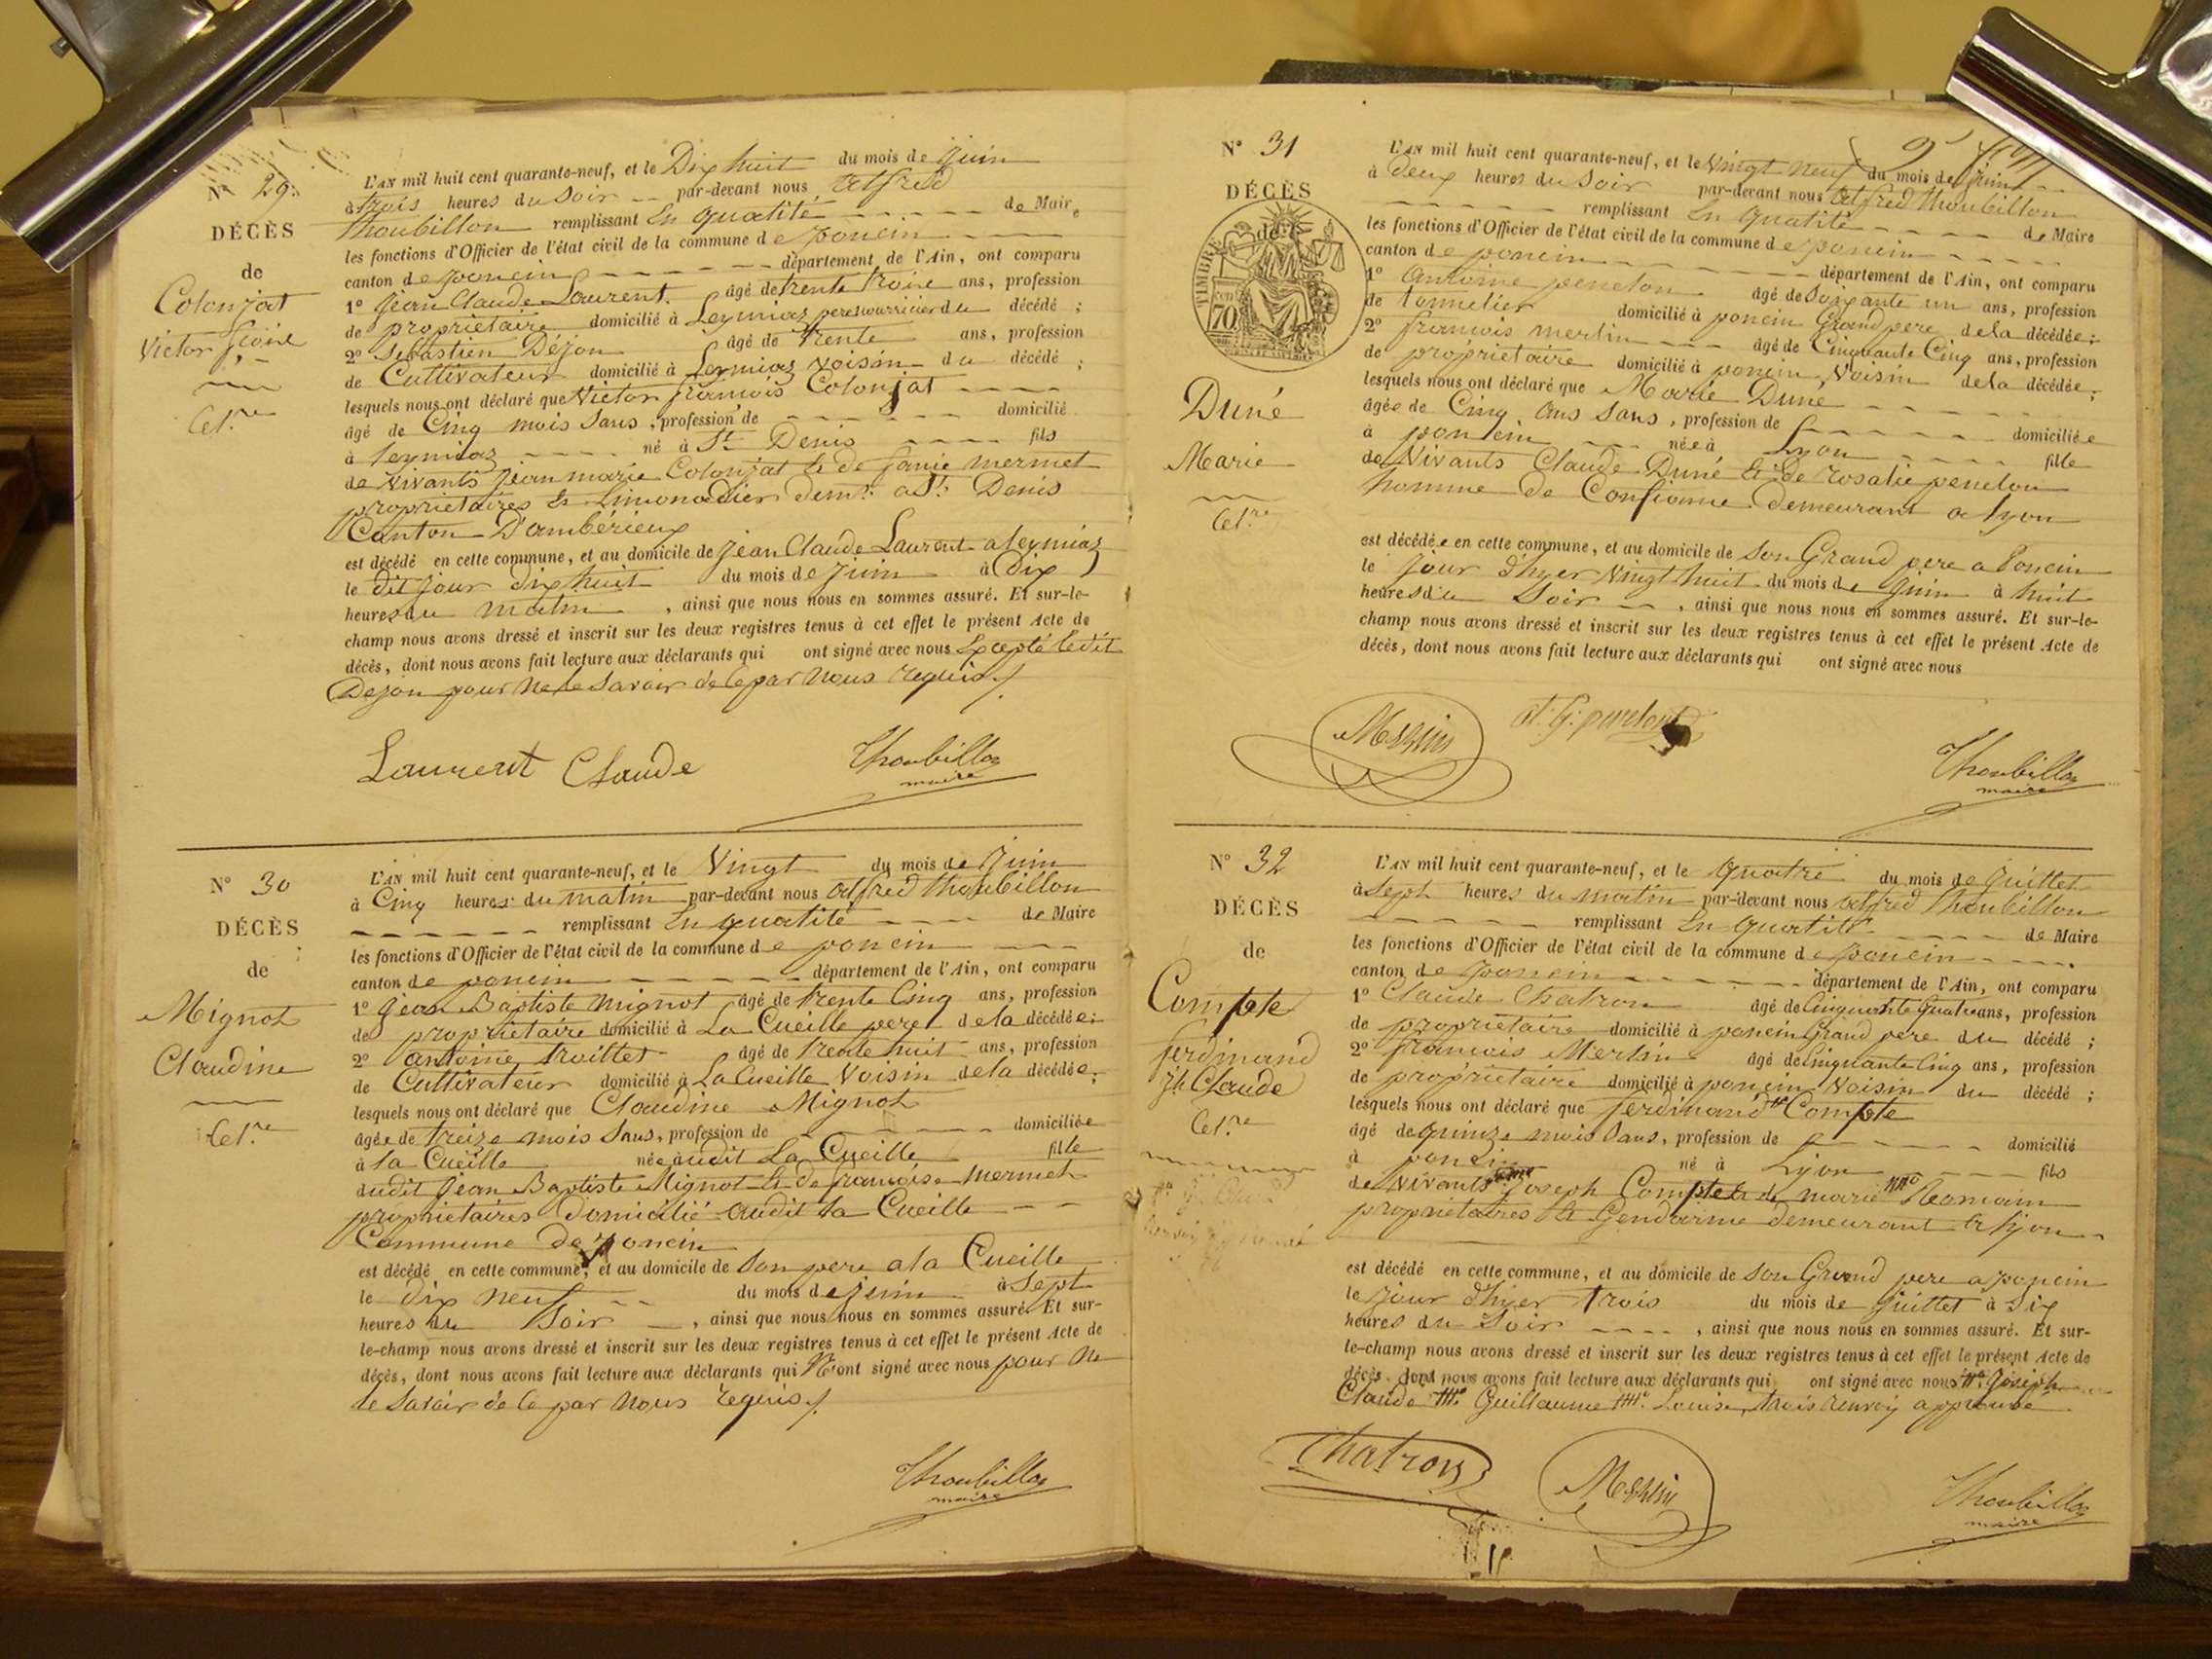 N° 29.
DÉCÈS
de
Colonjat
Victor
Cel.re
L'AN mil huit cent quarante-neuf, et le Dix huit du mois de Juin
à trois heures du soir par-devant nous Alfred
Thoubillon remplissant En qualité de Maire
les fonctions d'Officier de l'état civil de la commune de poncin
canton de poncin département de l'Ain, ont comparu
1° Jean Claude Laurent. âgé de trente trois ans, profession
de proprietaire domicilié à Leymiaz pere nourricier du décédé ;
2° Sebastien Déjon âgé de trente ans, profession
de Cultivateur domicilié à Leymiaz voisin du décédé ;
lesquels nous ont déclaré que Victor françois Colonjat
âgé de Cinq mois Sans, profession de domicilié
à Leymiaz né à St Denis fils
de vivants Jean marie Colonjat & de fanie mermet
proprietaires & Limonadier demt. a St. Denis
Canton D'ambérieux
est décédé en cette commune, et au domicile de Jean Claude Laurent a leymiaz
le dit jour dix huit du mois de Juin à Dix
heures du matin , ainsi que nous nous en sommes assuré. Et sur-le-
champ nous avons dressé et inscrit sur les deux registres tenus à cet effet le présent Acte de
décès, dont nous avons fait lecture aux déclarants qui ont signé avec nous Excepté ledit
Dejon pour ne le Savoir de ce par nous requis ./.
Laurent Claude Thoubillon
maire
N° 30
DÉCÈS
de
Mignot
Claudine
Cel.re
L'AN mil huit cent quarante-neuf, et le Vingt du mois de Juin
à Cinq heures du matin par-devant nous Alfred Thoubillon
remplissant En qualité de Maire
les fonctions d'Officier de l'état civil de la commune de poncin
canton de poncin département de l'Ain, ont comparu
1° Jean Baptiste Mignot âgé de trente Cinq ans, profession
de proprietaire domicilié à La Cueille pere de la décédée ;
2° antoine troillet âgé de trente huit ans, profession
de Cultivateur domicilié à La Cueille Voisin de la décédée ;
lesquels nous ont déclaré que Claudine Mignot
âgée de treize mois Sans, profession de domiciliée
à la Cueille née audit La Cueille fille
dudit Jean Baptiste Mignot & de françoise mermet
proprietaires domicilié audit la Cueille
Commune de poncin
est décédé en cette commune, et au domicile de son pere a la Cueille
le dix neuf du mois de Juin à Sept
heures du Soir , ainsi que nous nous en sommes assuré. Et sur-
le-champ nous avons dressé et inscrit sur les deux registres tenus à cet effet le présent Acte de
décès, dont nous avons fait lecture aux déclarants qui N'ont signé avec nous pour ne
le Savoir de ce par nous requis ./.
Thoubillon
maire
N° 31
DÉCÈS
de
TIMBRE
70
Duné
Marie
Cel.re
L'AN mil huit cent quarante-neuf, et le Vingt neuf du mois de Juin
à Deux heures du Soir par-devant nous Alfred Thoubillon
remplissant En qualité de Maire
les fonctions d'Officier de l'état civil de la commune de poncin
canton de poncin département de l'Ain, ont comparu
1° Antoine peneton âgé de Soixante un ans, profession
de tonnelier domicilié à poncin Grand pere de la décédée ;
2° françois merlin âgé de Cinquante Cinq ans, profession
de proprietaire domicilié à poncin, Voisin de la décédée ;
lesquels nous ont déclaré que Marie Duné
âgée de Cinq ans Sans, profession de domiciliée
à poncin née à Lyon fille
de Vivants Claude Duné & de rosalie peneton
homme de Confiance demeurant a lyon
est décédée en cette commune, et au domicile de Son Grand pere a Poncin
le jour d'hyer Vingt huit du mois de Juin à huit
heures du Soir , ainsi que nous nous en sommes assuré. Et sur-le-
champ nous avons dressé et inscrit sur les deux registres tenus à cet effet le présent Acte de
décès, dont nous avons fait lecture aux déclarants qui ont signé avec nous
Merlin Thoubillon
maire
N° 32
DÉCÈS
de
Compte
ferdinand
Jh Claude
Cel.re
L'AN mil huit cent quarante-neuf, et le quatre du mois de Juillet
à Sept heures du matin par-devant nous Alfred Thoubillon
remplissant En qualité de Maire
les fonctions d'Officier de l'état civil de la commune de poncin
canton de poncin département de l'Ain, ont comparu
1° Claude Chatron âgé de Cinquante quatre ans, profession
de proprietaire domicilié à poncin Grand pere du décédé ;
2° françois Merlin âgé de Cinquante Cinq ans, profession
de proprietaire domicilié à poncin Voisin du décédé ;
lesquels nous ont déclaré que ferdinand Compte
âgé de quinze mois Sans, profession de domicilié
à poncin né à Lyon fils
de Vivants Joseph Compte & de marie Romain
proprietaires & Gendarme demeurant a Lyon
est décédé en cette commune, et au domicile de Son Grand pere a poncin
le jour d'hyer trois du mois de Juillet à Six
heures du Soir , ainsi que nous nous en sommes assuré. Et sur-
le-champ nous avons dressé et inscrit sur les deux registres tenus à cet effet le présent Acte de
décès, dont nous avons fait lecture aux déclarants qui ont signé avec nous Joseph
Claude Guillaume Louise, trois renvoy approuvé
Chatron Merlin Thoubillon
maire